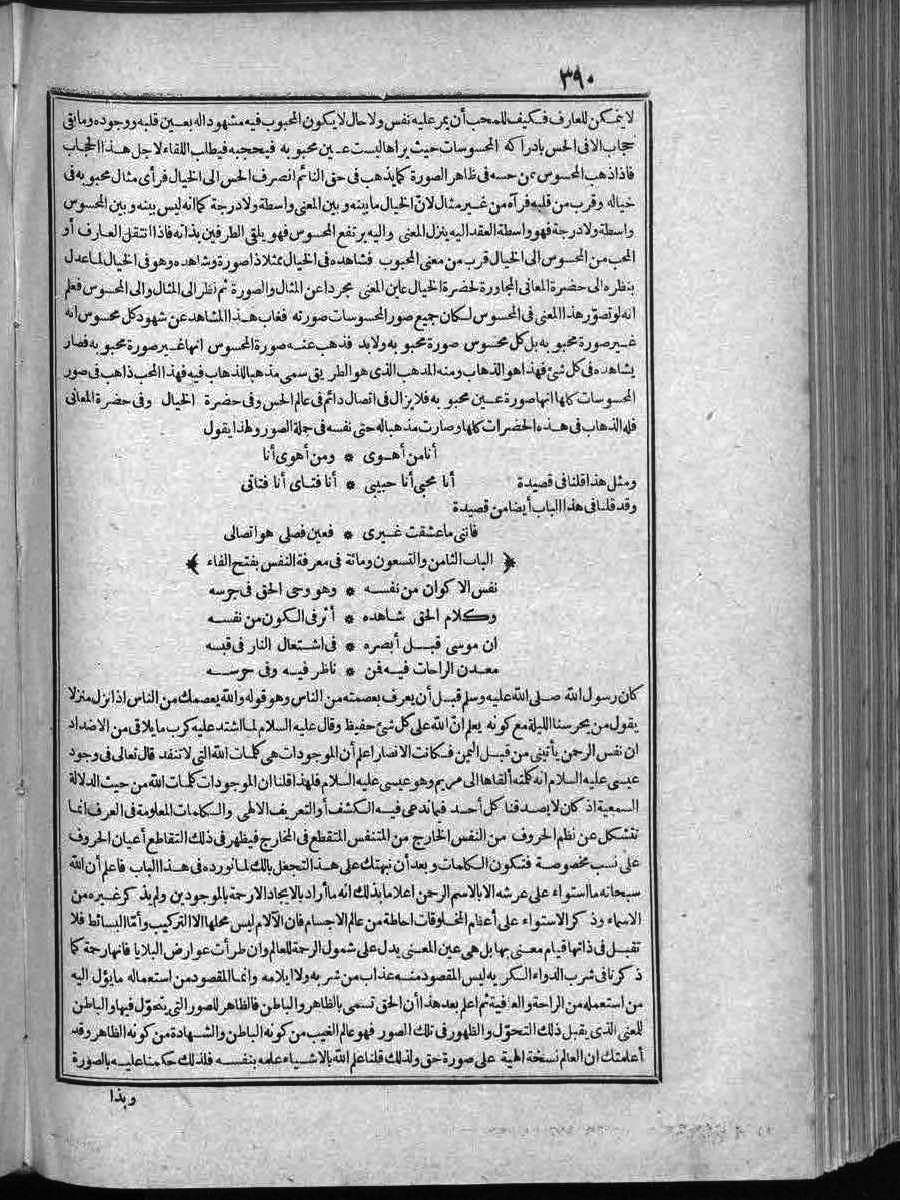 ٣٩٠
لا يتمكن للعارف فكيف للمحب أن يمر عليه نفس ولا حال لا يكون المحبوب فيه مشهودا له بعين قلبه ووجوده وما بقى
حجاب الا فى الحس بادراكه المحسوسات حيث يراها ليست عين محبوبه فيحجبه فيطلب اللقاء لاجل هذا الحجاب
فاذا ذهب المحسوس من حسه فى ظاهر الصورة كما يذهب فى حق النائم انصرف الحس الى الخيال فرأى مثال محبوبه فى
خياله وقرب من قلبه فرآه من غير مثال لان الخيال ما بينه وبين المعنى واسطة ولا درجة كما انه ليس بينه وبين المحسوس
واسطة ولا درجة فهو واسطة العقد اليه ينزل المعنى واليه يرتفع المحسوس فهو يلقى الطرفين بذاته فاذا انتقل العارف أو
المحب من المحسوس الى الخيال قرب من معنى المحبوب فشاهده فى الخيال ممثلا ذا صورة وشاهده وهو فى الخيال لما عدل
بنظره الى حضرة المعانى المجاورة لحضرة الخيال عاين المعنى مجردا عن المثال والصورة ثم نظر الى المثال والى المحسوس فعلم
انه لو تصور هذا المعنى فى المحسوس لكان جميع صور المحسوسات صورته فغاب هذا المشاهد عن شهود كل محسوس انه
غير صورة محبوبه بل كل محسوس صورة محبوبه ولا بد فذهب عنه صورة المحسوس انها غير صورة محبوبه فصار
يشاهده فى كل شئ فهذا هو الذهاب ومنه المذهب الذى هو الطريق سمى مذهبا للذهاب فيه فهذا المحب ذاهب فى صور
المحسوسات كلها انها صورة عين محبوبه فلا يزال فى اتصال دائم فى عالم الحس وفى حضرة الخيال وفى حضرة المعانى
فله الذهاب فى هذه الحضرات كلها وصارت مذهبا له حتى نفسه فى جملة الصور ولهذا يقول
أنا من أهوى * ومن أهوى أنا
ومثل هذا قلنا فى قصيدة أنا محبى أنا حبيبى * أنا فتاى أنا فتاتى
وقد قلنا فى هذا الباب أيضا من قصيدة
فاننى ما عشقت غيرى * فعين فصلى هو اتصالى
﴿ الباب الثامن والتسعون ومائة فى معرفة النفس بفتح الفاء ﴾
نفس الاكوان من نفسه * وهو وحى الحق فى جرسه
وكلام الحق شاهده * أثر فى الكون من نفسه
ان موسى قبل أبصره * فى اشتعال النار فى قبسه
معدن الراحات فيه فمن * ناظر فيه وفى حرسه
كان رسول الله صلى الله عليه وسلم قبل أن يعرف بعصمته من الناس وهو قوله والله يعصمك من الناس اذا نزل منزلا
يقول من يحرسنا الليلة مع كونه يعلم ان الله على كل شئ حفيظ وقال عليه السلام لما اشتد عليه كرب ما يلاقى من الاضداد
ان نفس الرحمن يأتينى من قبل اليمن فكانت الانصار اعلم أن الموجودات هى كلمات الله التى لا تنفد قال تعالى فى وجود
عيسى عليه السلام انه كلمته ألقاها الى مريم وهو عيسى عليه السلام فلهذا قلنا ان الموجودات كلمات الله من حيث الدلالة
السمعية اذ كان لا يصدقنا كل أحد فيما ندعى فيه الكشف أو التعريف الالهى والكلمات المعلومة فى العرف انما
تتشكل عن نظم الحروف من النفس الخارج من المتنفس المتقطع فى المخارج فيظهر فى ذلك التقاطع أعيان الحروف
على نسب مخصوصة فتكون الكلمات وبعد أن نبهتك على هذا لتجعل بالك لما نورده فى هذا الباب فاعلم أن الله
سبحانه ما استواء على عرشه الا بالاسم الرحمن اعلاما بذلك انه ما أراد بالايجاد الا رحمة بالموجودين ولم يذكر غيره من
الاسماء وذكر الاستواء على أعظم المخلوقات احاطة من عالم الاجسام فان الآلام ليس محلها الا التركيب وأما البسائط فلا
تقبل فى ذاتها قيام معنى بها بل هى عين المعنى يدل على شمول الرحمة للعالم وان طرأت عوارض البلايا فانها رحمة كما
ذكرنا فى شرب الدواء الكريه ليس المقصود منه عذاب من شربه ولا ايلامه وانما المقصود من استعماله ما يؤل اليه
من استعمله من الراحة والعافية ثم اعلم بعد هذا أن الحق تسمى بالظاهر والباطن فالظاهر للصور التى يتحول فيها والباطن
للمعنى الذى يقبل ذلك التحول والظهور فى تلك الصور فهو عالم الغيب من كونه الباطن والشهادة من كونه الظاهر وقد
أعلمتك ان العالم نسخة الهية على صورة حق ولذلك قلنا علم الله بالاشياء علمه بنفسه فلذلك حكمنا عليه بالصورة
وبذا